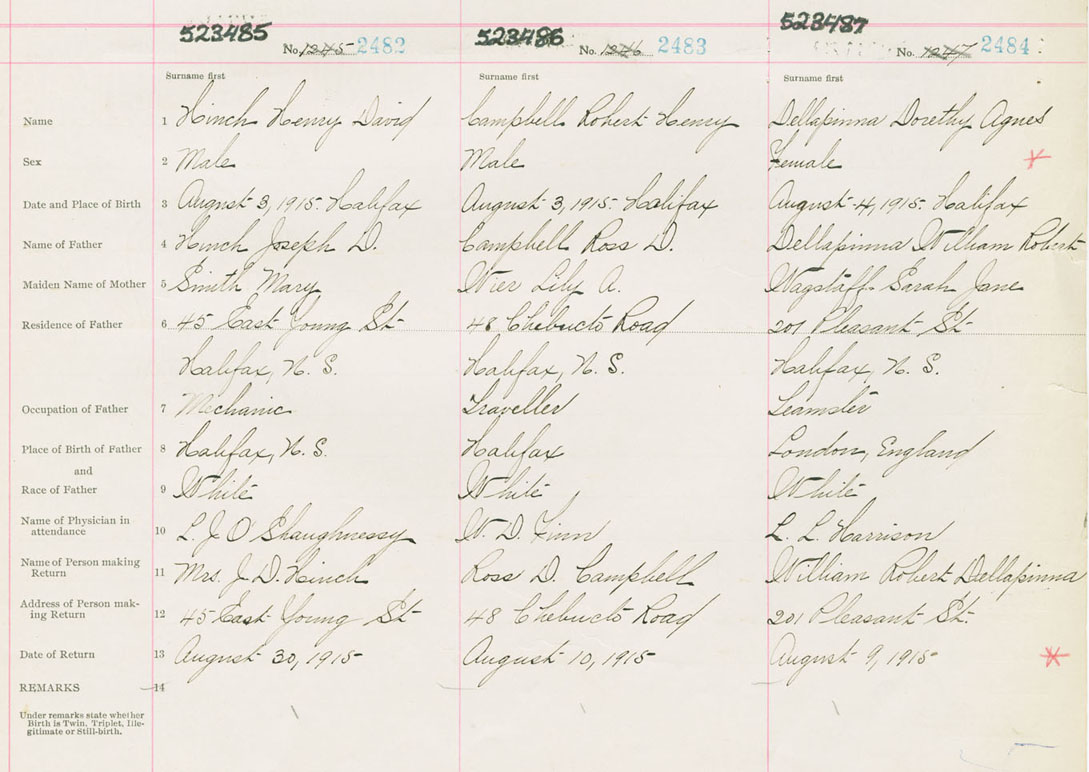 523485 523486 523487
No. 1245 2482 No. 1246 2483 No. 1247 2484
Surname first Surname first Surname first
Name 1 Hinch Henry David Campbell Robert Henry Dellapinna Dorethy Agnes
Sex 2 Male Male Female
Date and Place of Birth 3 August 3, 1915. Halifax August 3, 1915. Halifax August 4, 1915. Halifax
Name of Father 4 Hinch Joseph D. Campbell Ross D. Dellapinna William Robert
Maiden Name of Mother 5 Smith Mary Wier Lily A. Wagstaff Sarah Jane
Residence of Father 6 45 East Young St 48 Chebucto Road 201 Pleasant St.
Halifax, N. S. Halifax, N. S. Halifax, N. S.
Occupation of Father 7 Mechanic Traveller Teamster
Place of Birth of Father 8 Halifax, N. S. Halifax London, England
and
Race of Father 9 White White White
Name of Physician in
attendance 10 L. J. O'Shaughnessy W. D. Finn L. L. Harrison
Name of Person making
Return 11 Mrs. J. D. Hinch Ross D. Campbell William Robert Dellapinna
Address of Person mak-
ing Return 12 45 East Young St 48 Chebucto Road 201 Pleasant St.
Date of Return 13 August 30, 1915 August 10, 1915 August 9, 1915
REMARKS 14
Under remarks state whether
Birth is Twin, Triplet, Ille-
gitimate or Still-birth.